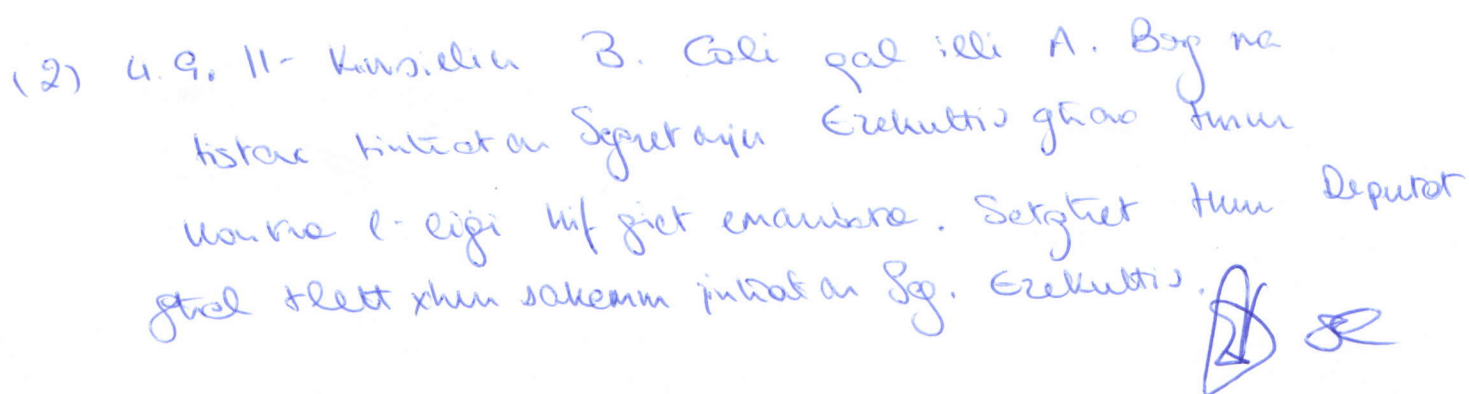 (2) 4.9. Il-Kunsillier B. Cali qal illi A. Borg ma
tistax tinħatar Segretarju Eżekuttiv għax tmur
kontra l-liġi kif ġiet emendata. Setgħet tkun Deputat
għal tlett xhur sakemm jinħatar Seg. Eżekuttiv.